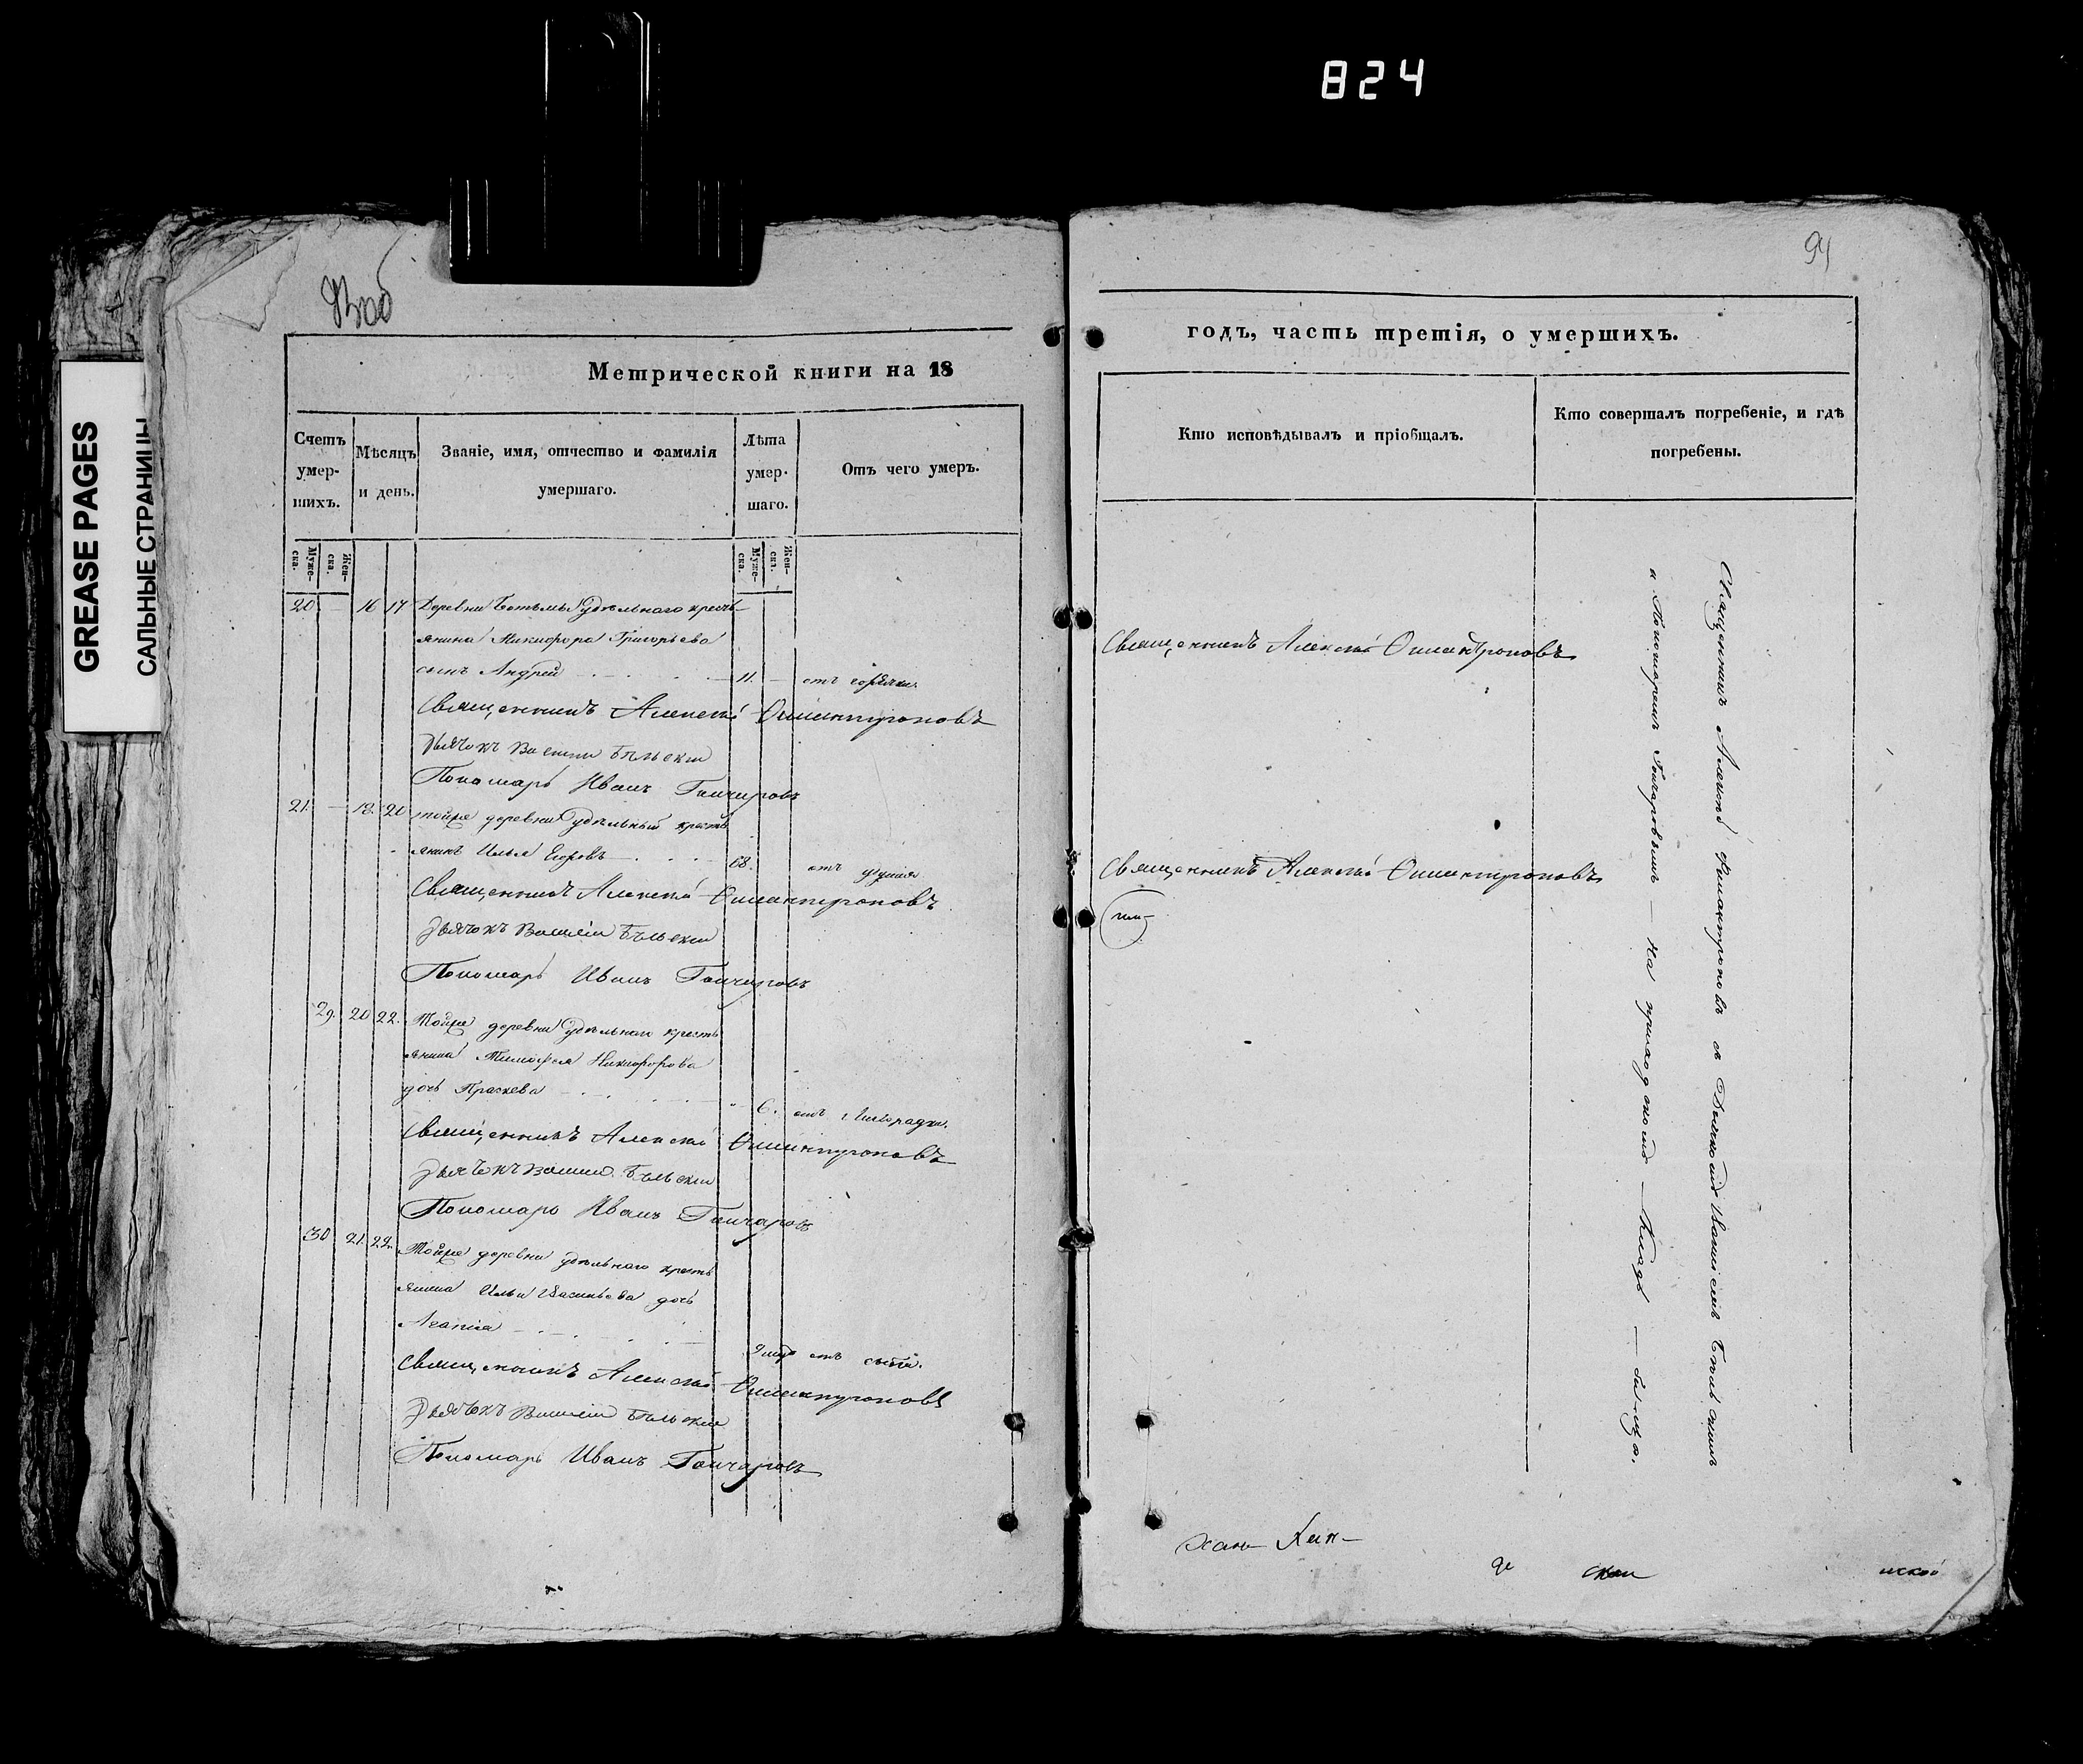 824
GREASE PAGES
САЛЬНЫЕ СТРАНИЦЫ
94
Метрической книги на 18
годъ, часть третія, о умершихъ.
Счетъ умер-шихъ.
Мѣсяцъ и день.
Званіе, имя, отчество и фамилія умершаго.
Лѣта умер-шаго.
Отъ чего умеръ.
Кто исповѣдывалъ и пріобщалъ.
Кто совершалъ погребеніе, и гдѣ погребены.
Муже-ска.
Жен-ска.
Муже-ска.
Жен-ска.
20 — 16 17 Деревни удѣльнаго кресть
янина Никифора Григорьева
сынъ Андрей 11. — отъ горячки.
Священникъ Алексѣй
Дьячокъ Василий Бѣльскій
Пономарь Иванъ Гончаровъ
Священникъ Алексѣй
21. — 18. 20 тойже деревни удѣльный кресть
янинъ Илья Егоровъ 68. отъ удушья
Священникъ Алексѣй
Дьячокъ Василій Бѣльскій
Пономарь Иванъ Гончаровъ
Священникъ Алексѣй
29. 20 22. Тойже деревни удѣльнаго кресть
янина Тимофея Никифорова
дочь Праскева 6. отъ лихорадки.
Священникъ Алексѣй
Дьячекъ Василій Бѣльскій
Пономарь Иванъ Гончаровъ
30 21. 22. Тойже деревни удѣльнаго кресть
янина Ильи Васильева дочь
Агапія
отъ
Священникъ Алексѣй
Дьячокъ Василій Бѣльскій
Пономарь Иванъ Гончаровъ
Священникъ Алексѣй съ Дьячкомъ Василіемъ Бѣльскимъ
и Пономаремъ Гончаровымъ — на приходскомъ — Кладъ — бищѣ.